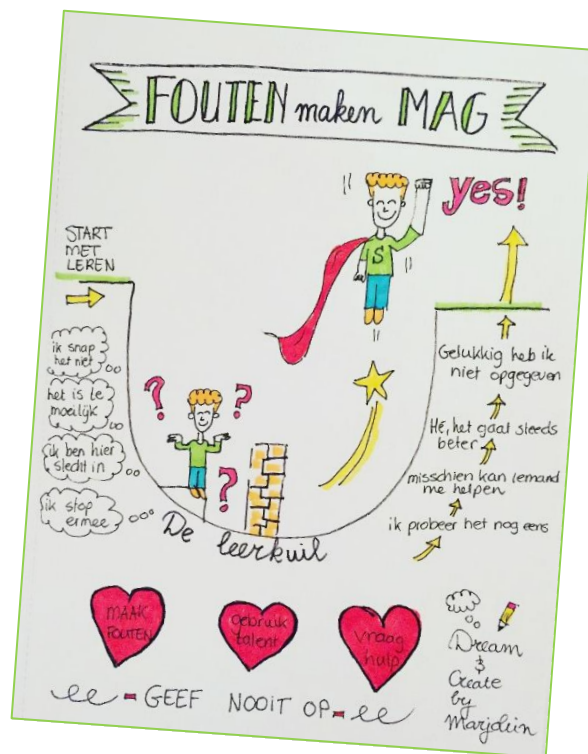 FOUTEN maken MAG
yes!
START
MET
LEREN
ik snap
het niet
het is te
moeilijk
ik ben hier
slecht in
ik stop
ermee
? ? ?
S
De leerkuil
Gelukkig heb ik
niet opgegeven
Hé, het gaat steeds
beter
misschien kan iemand
me helpen
ik probeer het nog eens
MAAK
FOUTEN
gebruik
talent
vraag
hulp
GEEF NOOIT OP
Dream
&
Create
by
Marjolein